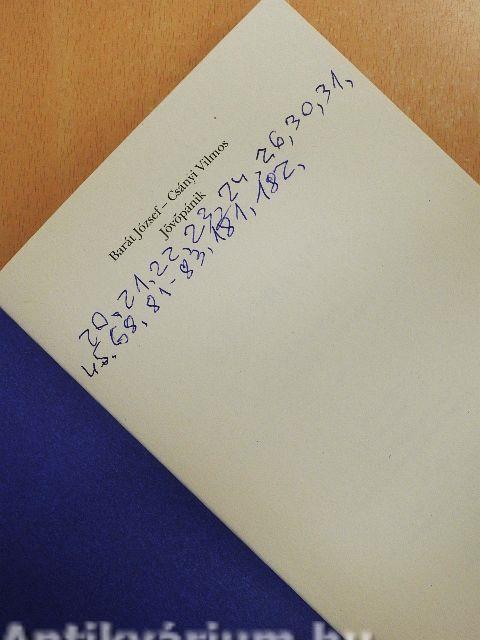 Barát József – Csányi Vilmos
Jövőpánik
20, 21, 22, 23, 24, 26, 30, 31,
45, 68, 81-83, 181, 182,
Antikvárium.hu